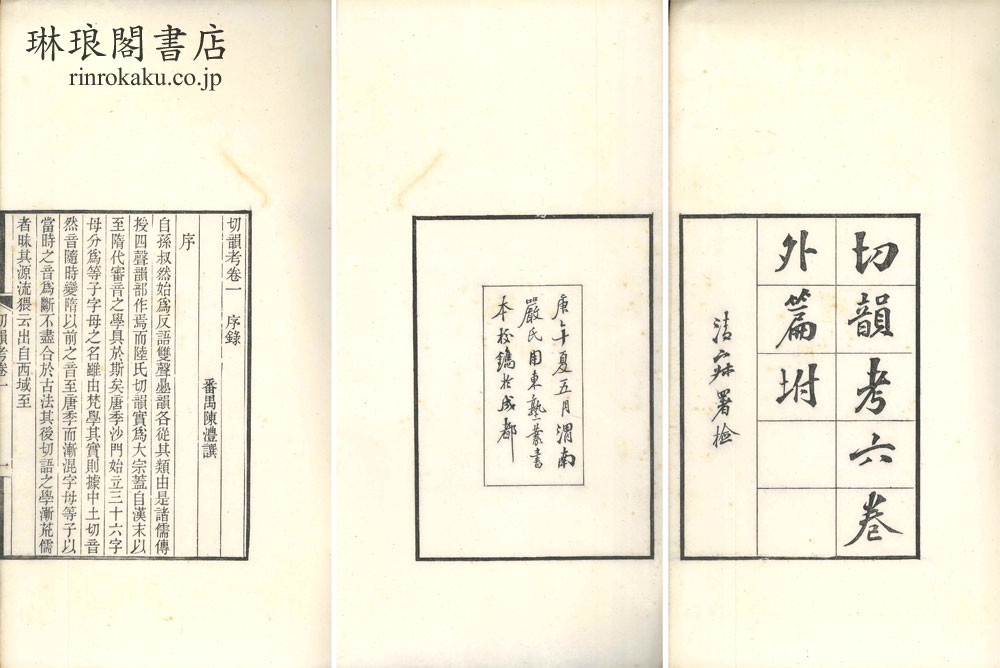 琳琅閣書店
rinrokaku.co.jp
切韻考六卷
外篇坿
署檢
庚午夏五月渭南
嚴氏用東塾叢書
本校鐫於成都
切韻考卷一 序錄
番禺陳澧撰
序
自孫叔然始爲反語雙聲疊韻各從其類由是諸儒傳
授四聲韻部作焉而陸氏切韻實爲大宗蓋自漢末以
至隋代審音之學具於斯矣唐季沙門始立三十六字
母分爲等子字母之名雖由梵學其實則據中土切音
然音隨時變隋以前之音至唐季而漸混字母等子以
當時之音爲斷不盡合於古法其後切語之學漸荒儒
者昧其源流猥云出自西域至
切韻考卷一
一